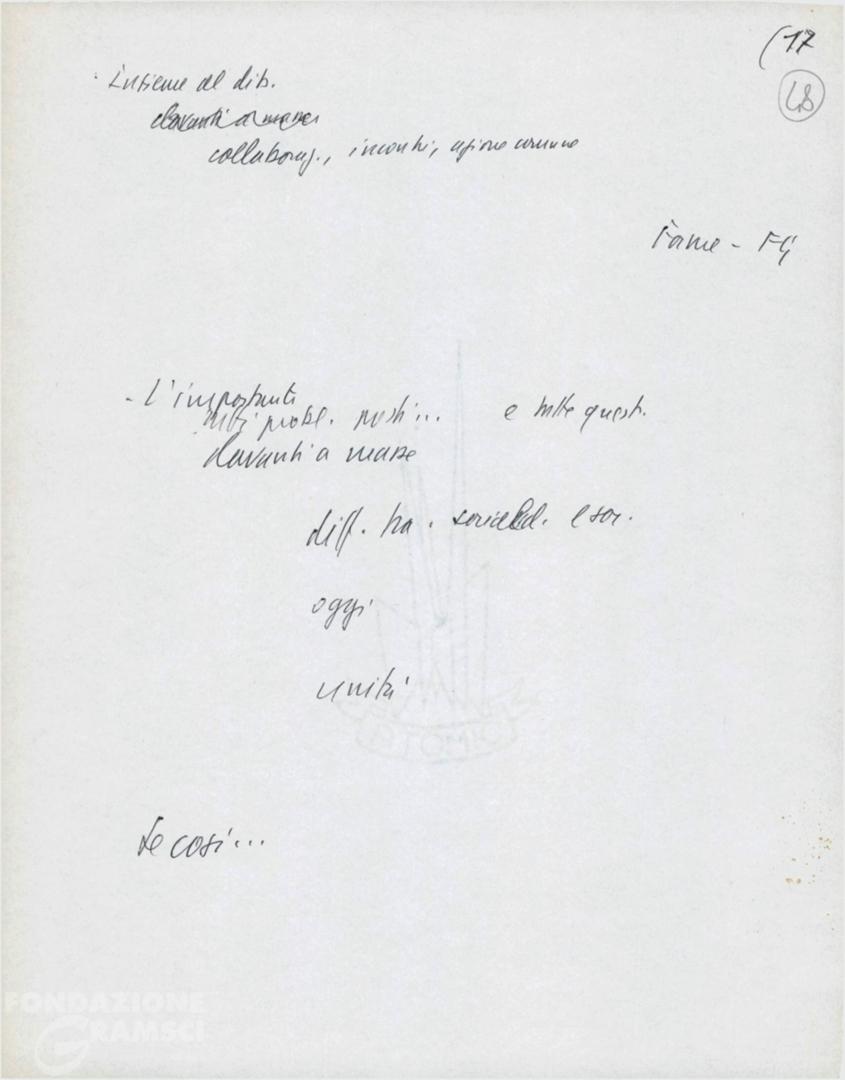 (17
48
- Insieme al dib.
davanti a masse
collaboraz., incontri, azione comune
Fame -
- L'importante
probl. posti... e tutte quest.
davanti a masse
diff. tra . socialdd. e soc.
oggi
unità
Se così...
ATOMIC
FONDAZIONE
GRAMSCI